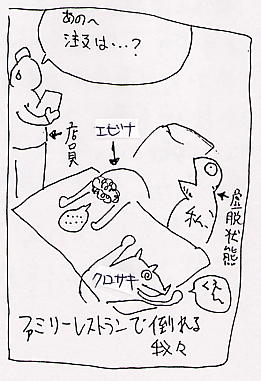 あのへ
注文は…?
店員
エビナ
虚脱状態
私、
クロサキ
くえん
ファミリーレストランで倒れる
我々